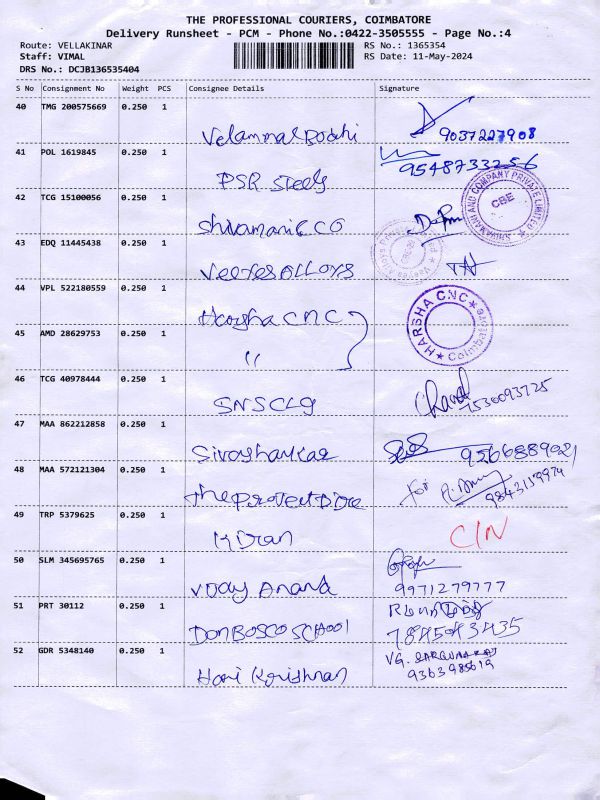 THE PROFESSIONAL COURIERS, COIMBATORE
Delivery Runsheet - PCM - Phone No.:0422-3505555 - Page No.:4
Route: VELLAKINAR RS No.: 1365354
Staff: VIMAL RS Date: 11-May-2024
DRS No.: DCJB136535404
S No Consignment No Weight PCS Consignee Details Signature
40 TMG 200575669 0.250 1
Velammal Bodhi 9037227908
41 POL 1619845 0.250 1
PSR Steels 9548733256
42 TCG 15100056 0.250 1
Shivamani & CO
SHIVAMANI AND COMPANY PRIVATE LIMITED CBE
43 EDQ 11445438 0.250 1
Veeyes ALLOYS
44 VPL 522180559 0.250 1
Harsha CNC
HARSHA CNC Coimbatore
45 AMD 28629753 0.250 1
"
46 TCG 40978444 0.250 1
SNSCLG 7530093725
47 MAA 862212858 0.250 1
Sivashankar 9566889021
48 MAA 572121304 0.250 1
for 9843159974
49 TRP 5379625 0.250 1
Kiran C/N
50 SLM 345695765 0.250 1
Vijay Anand 9971279777
51 PRT 30112 0.250 1
DON BOSCO SCHOOl 7845043435
52 GDR 5348140 0.250 1
Hari Krishnan VG. SARGUNARAJ
9363985619